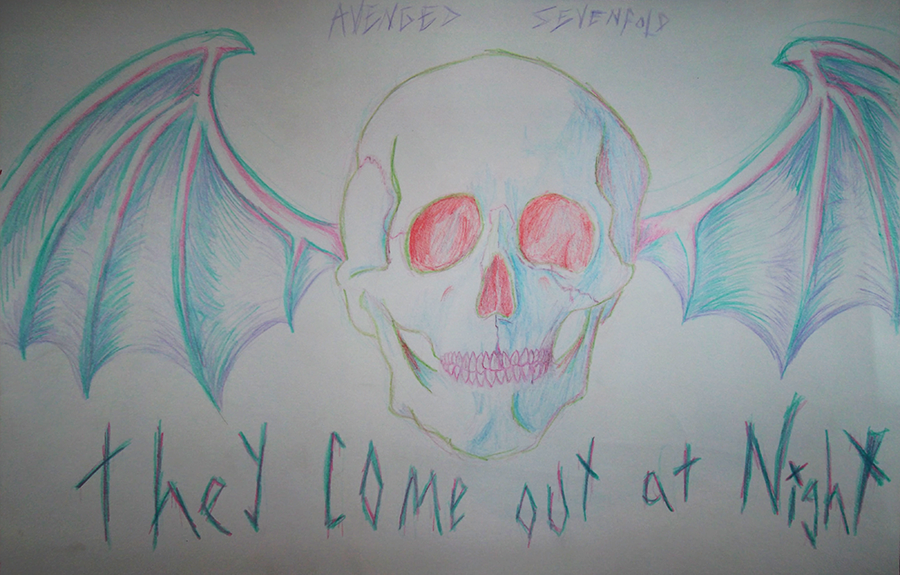 AVENGED SEVENFOLD
They Come out at Night